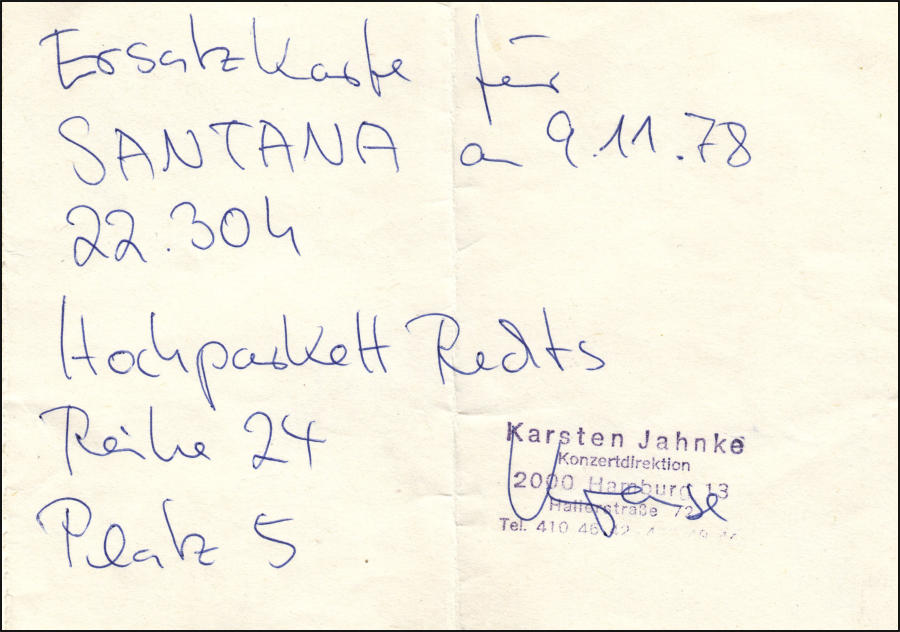 Ersatzkarte für
SANTANA am 9.11.78
22.304
Hochparkett Rechts
Reihe 24
Platz 5
Karsten Jahnke
Konzertdirektion
2000 Hamburg 13
Hallerstraße 72
Tel. 410 46 42